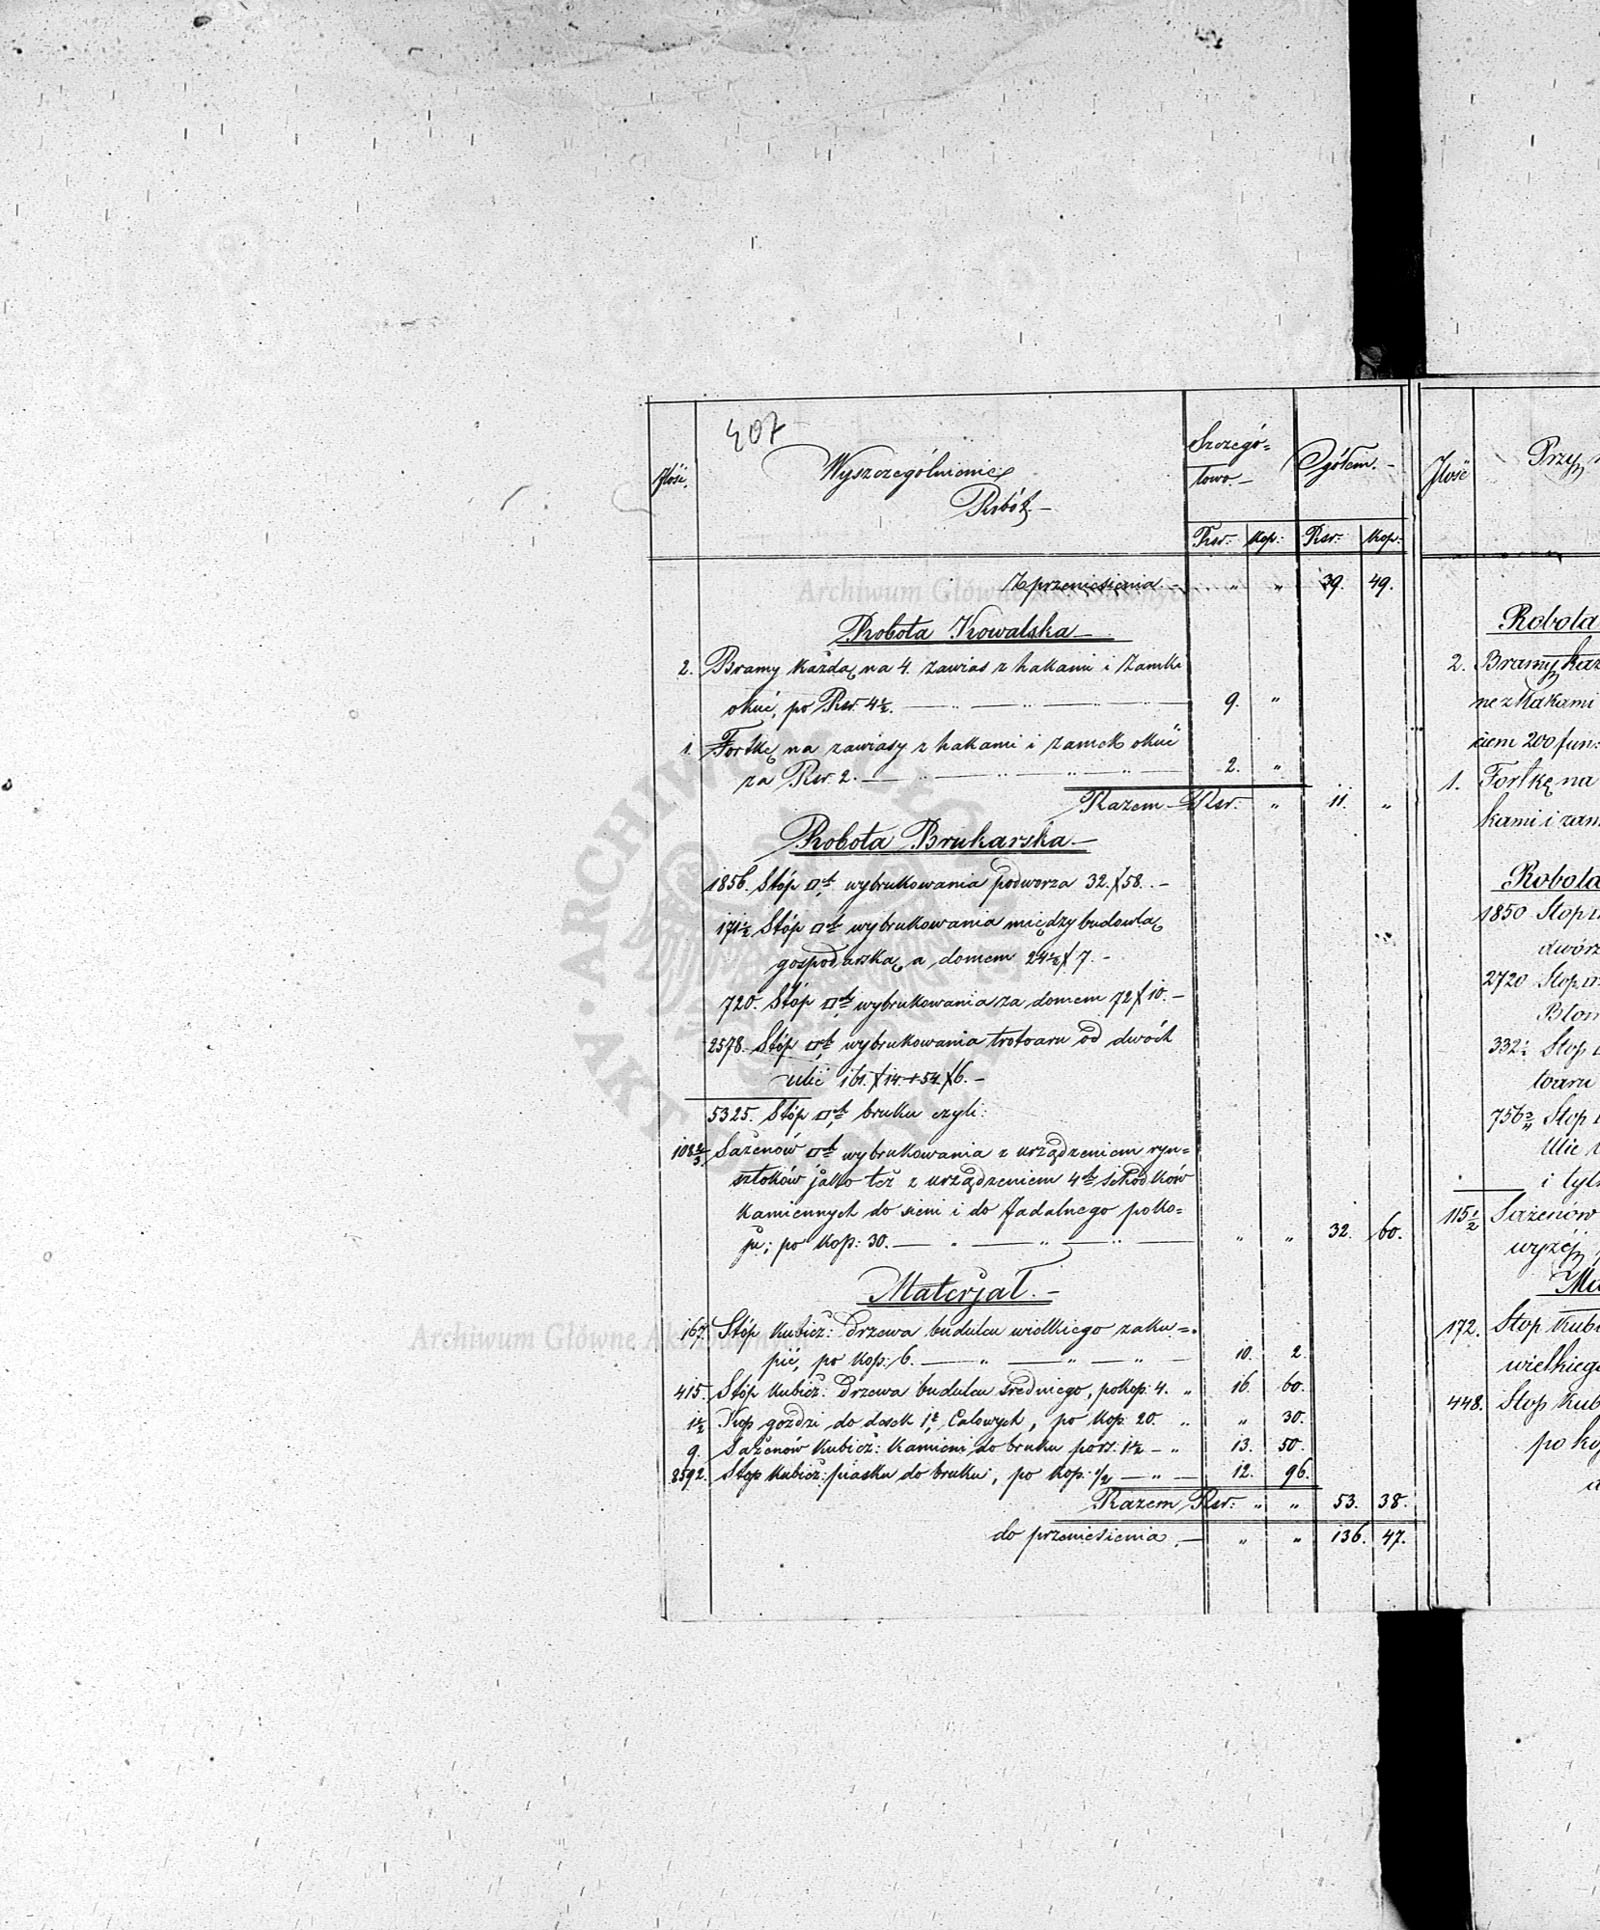 407
Ilość. Wyszczególnienie Szczegó= Ogółem.-
Robót.- łowo.-
Rsr: Kop: Rsr: Kop:
Z przeniesienia.- „ „ 39. 49.
Robota Kowalska
2. Bramy każdą na 4. zawias z hakami i zamki
okuć, po Rsr. 4½. — „ — „ — „ — 9. „
1. Fortkę na zawiasy z hakami i zamek okuć
za Rsr. 2. — „ — „ — „ — „ — 2. „
Razem - Rsr. „ 11. „
Robota Brukarska
1856. Stóp □ wybrukowania podworza 32.×58.-
171½ Stóp □ wybrukowania między budowlą
gospodarską a domem 24½×7.-
720. Stóp □ wybrukowania za domem 72×10.-
2578. Stóp □ wybrukowania trotoaru od dwóch
ulic 161.×14.+54.×6.-
5325. Stóp □ bruku czyli:
108⅔. Sażenów □ wybrukowania z urządzeniem ryn=
sztoków jako też z urządzeniem 4 schodków
kamiennych do sieni i do Jadalnego poko=
ju; po kop: 30. — „ — „ — „ — „ „ 32. 60.
Materjał.-
167. Stóp kubicz: drzewa budulcu wielkiego zaku=
pić, po kop: 6. — „ — „ — „ — 10. 2.
415. Stóp kubicz: Drzewa budulcu średniego, po kop: 4. „ 16. 60.
1½ Kop goździ do desek 1 Calowych, po kop. 20. „ „ 30.
9. Sażenów kubicz: Kamieni do bruku po rs: 1½ - „ 13. 50.
2592. Stóp kubicz: piasku do bruku; po kop: ½ — „ — 12. 96.
Razem Rsr: „ „ 53. 38.
do przeniesienia.- „ „ 136. 47.
Ilość Przy
Robota
2. Bramy
ne z Hakami
ciem 200 fun:
1. Fortkę na
kami i zam
Robota
1850 Stop
dwórz
2720 Stop.
Błon
332½ Stop
toaru
756 Stop
Ulic
i tyl
115½ Sażenów
wyżej
172. Stop Kub
wielkieg
448. Stop Kub
po ko
Archiwum Główne Akt Dawnych
Archiwum Główne Akt Dawnych